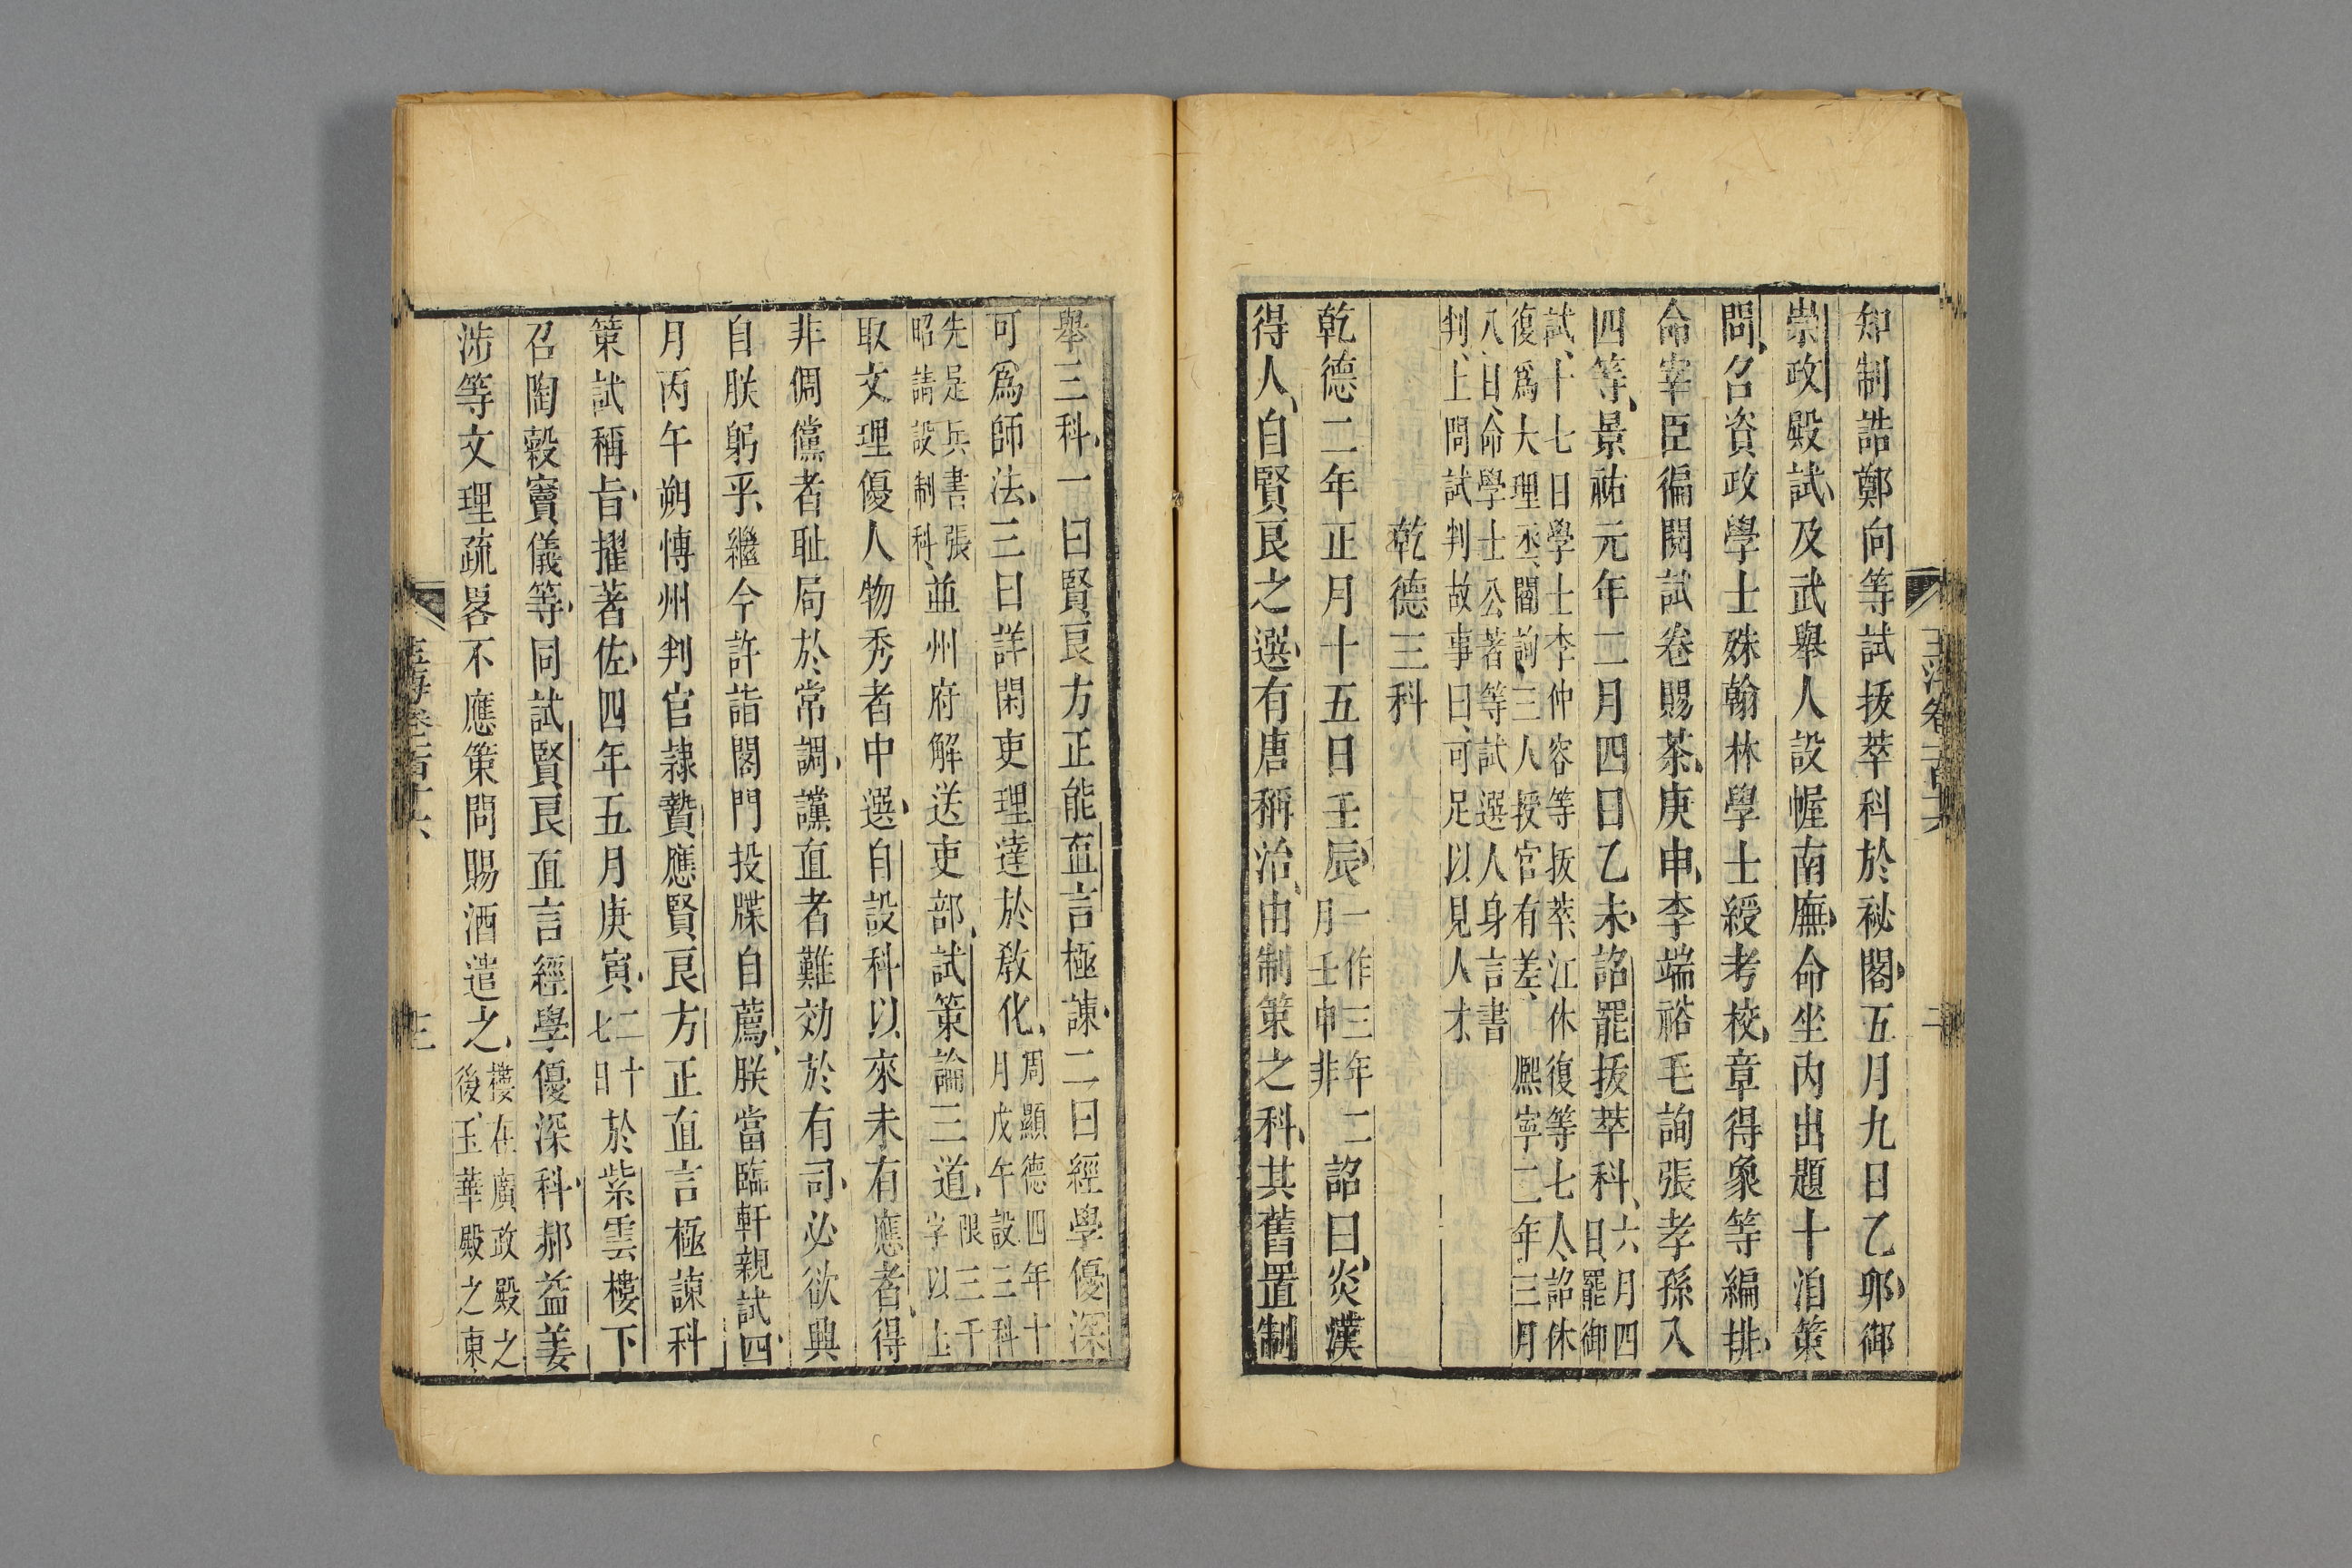 玉海卷一百十六 二
知制誥鄭向等試拔萃科於祕閣五月九日乙卯御
崇政殿試及武舉人設幄南廡命坐內出題十洎策
問召資政學士殊翰林學士綬考校章得象等編排
命宰臣徧閱試卷賜茶庚申李端裕毛詢張孝孫入
四等景祐元年二月四日乙未詔罷拔萃科六月四
日罷御
試十七日學士李仲容等拔萃江休復等七人詔休
復爲大理丞閻詢三人授官有差 熈寧二年三月
八日命學士公著等試選人身言書
判上問試判故事曰可足以見人才
乾德三科
乾德二年正月十五日壬辰一作三年二
月壬申非詔曰炎漢
得人自賢良之選有唐稱治由制策之科其舊置制
舉三科一曰賢良方正能直言極諫二曰經學優深
可爲師法三曰詳閑吏理達於教化周顯德四年十
月戊午設三科
先是兵書張
昭請設制科並州府解送吏部試策論三道限三千
字以上
取文理優人物秀者中選自設科以來未有應者得
非倜儻者耻局於常調讜直者難効於有司必欲興
自朕躬乎繼今許詣閤門投牒自薦朕當臨軒親試四
月丙午朔博州判官隷贄應賢良方正直言極諫科
策試稱旨擢著佐四年五月庚寅二十
七日於紫雲樓下
召陶穀竇儀等同試賢良直言經學優深科郝益姜
涉等文理疏畧不應策問賜酒遣之樓在廣政殿之
後玉華殿之東
玉海卷一百十六 三